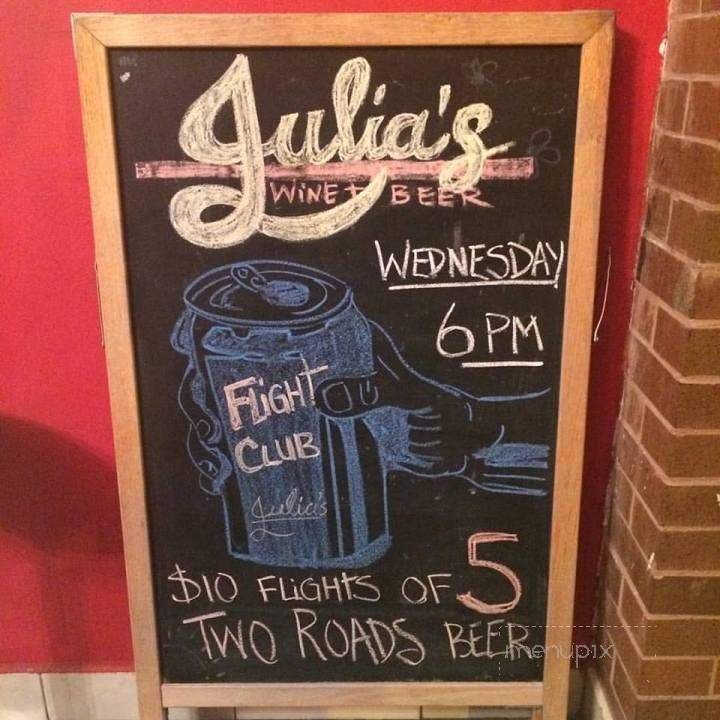 Julia's
WINE + BEER
WEDNESDAY
6 PM
FLIGHT
CLUB
Julia's
$10 FLIGHTS OF 5
TWO ROADS BEER
menupix